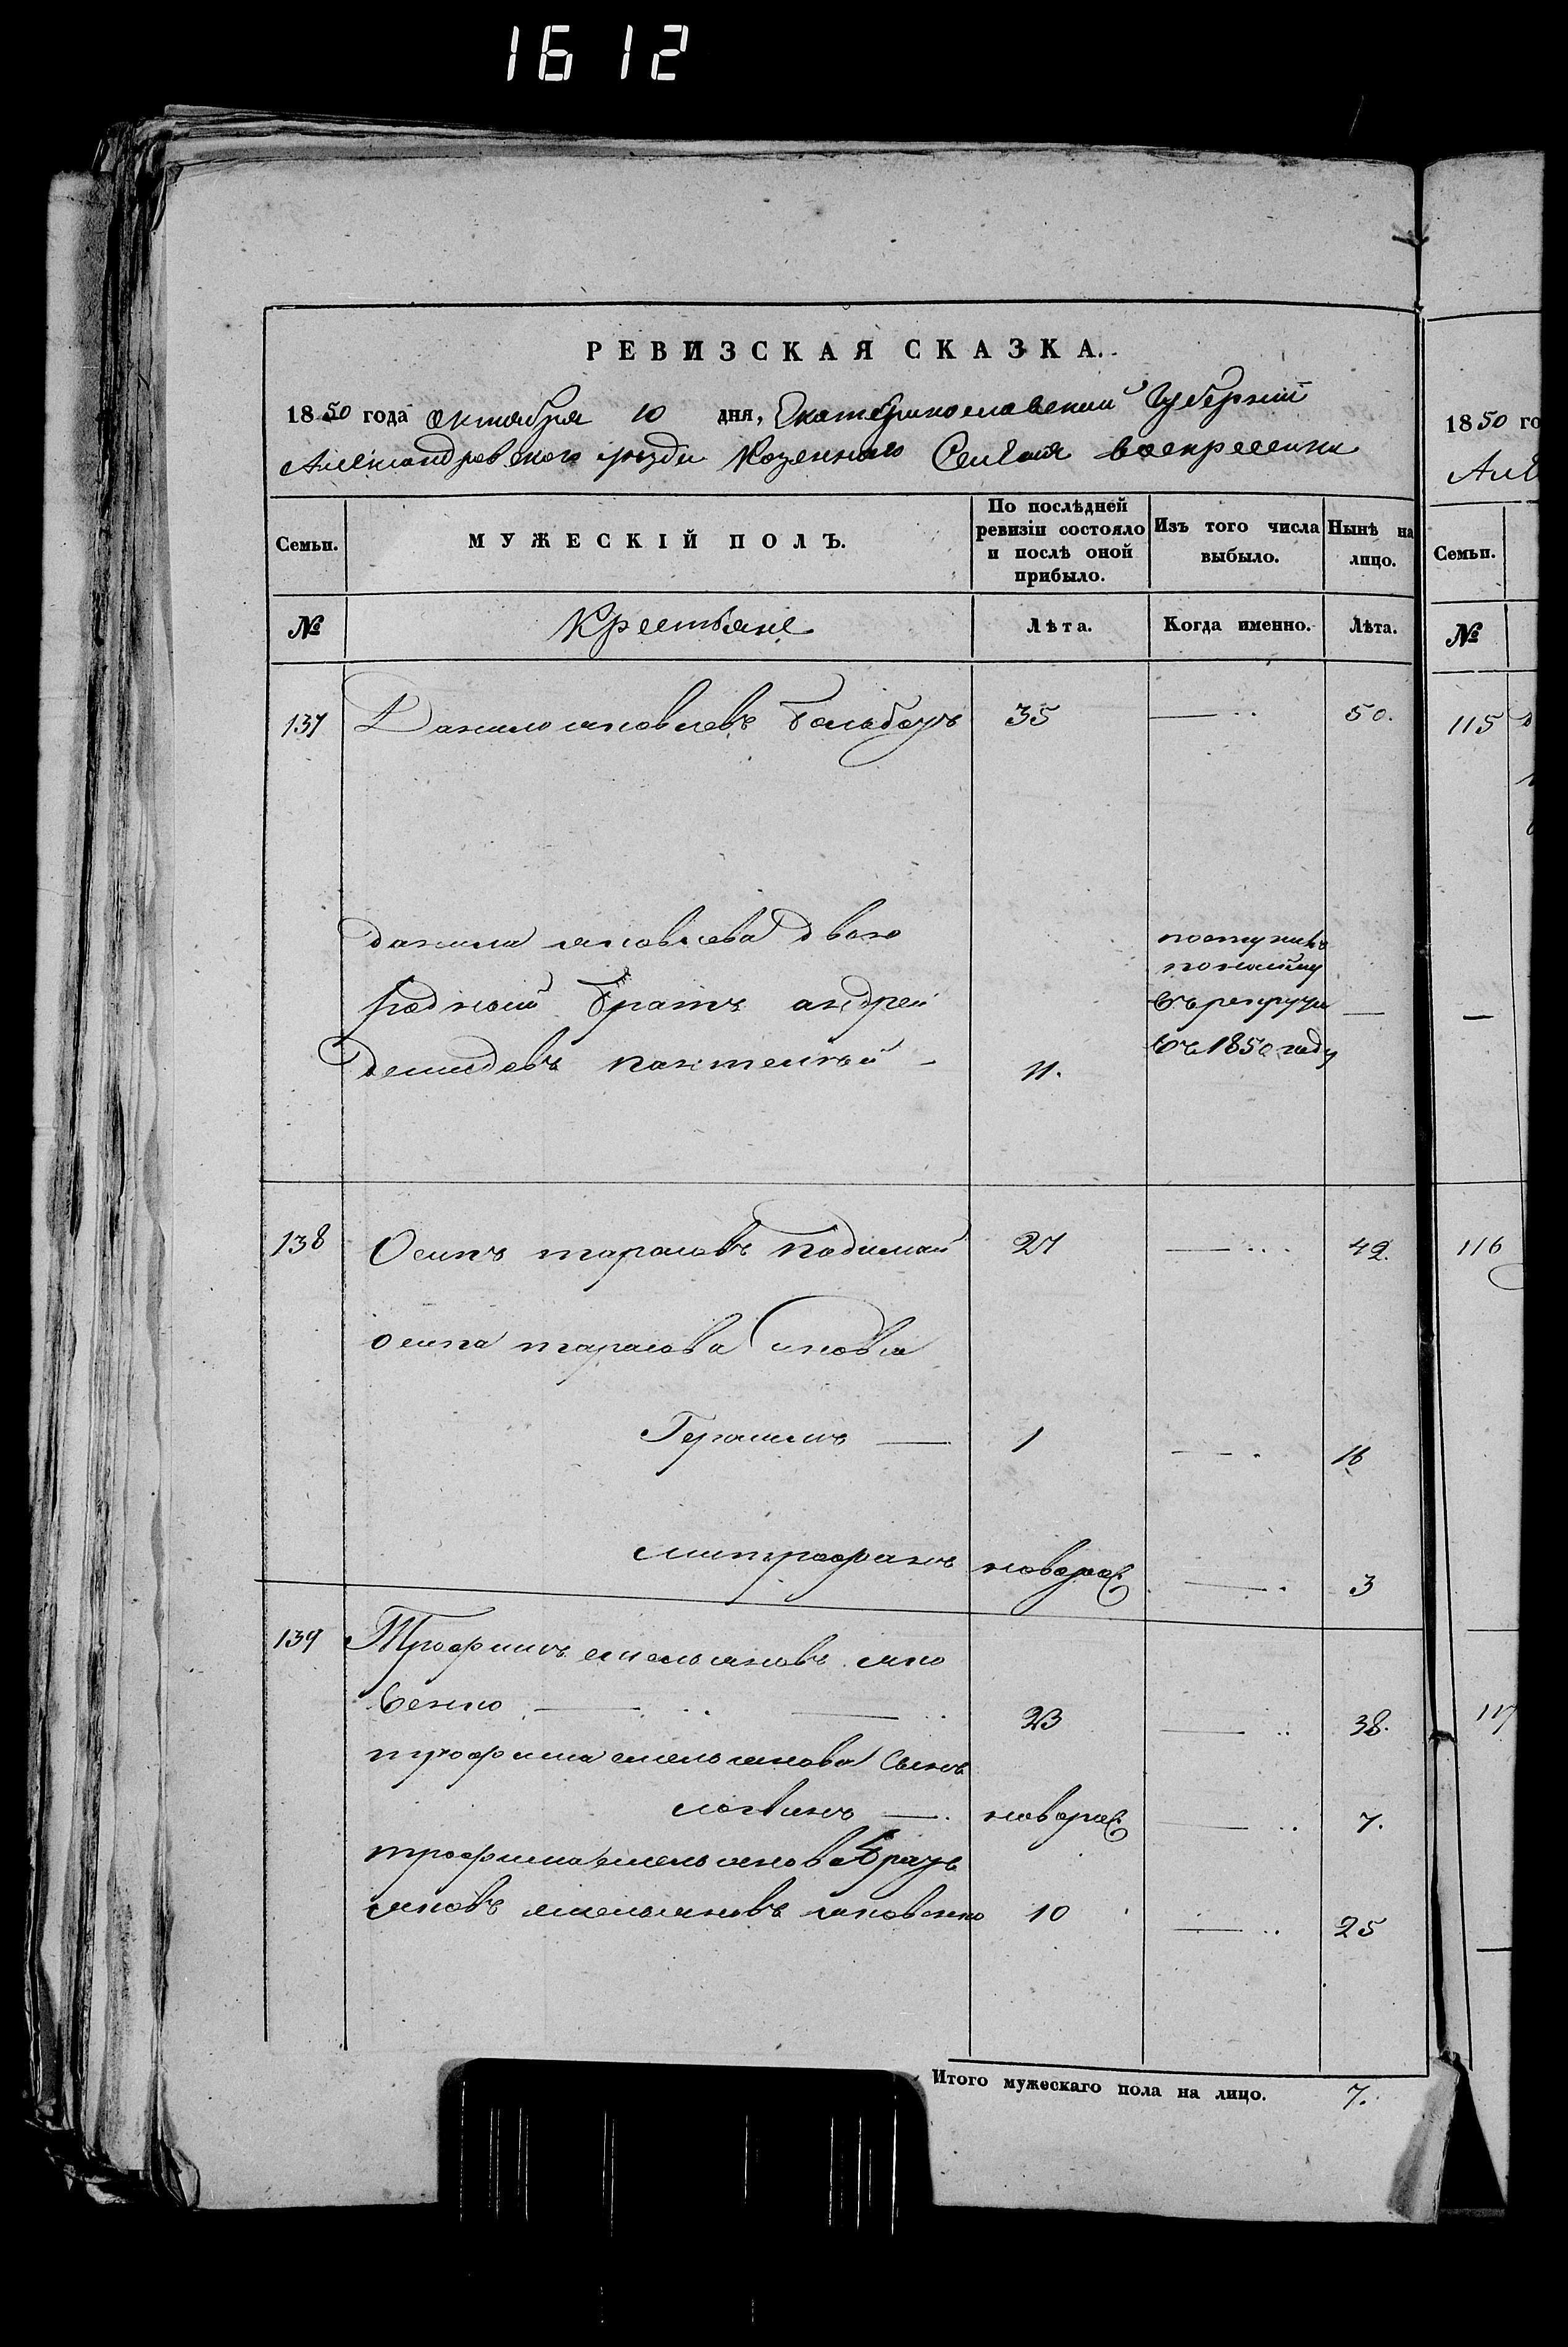 1612
РЕВИЗСКАЯ СКАЗКА.
1850 года октября 10 дня, Екатеринославской Губернии
Александровского уезда Казенного Селения воскресенки
Семьи. МУЖЕСКІЙ ПОЛЪ. По послѣдней ревизіи состояло и послѣ оной прибыло. Изъ того числа выбыло. Нынѣ на лицо.
№ Крестьяне Лѣта. Когда именно. Лѣта.
137 Данило яковлевъ 35 — 50.
данила яковлева двою
родный братъ андрей
демидовъ 11. —
поступилъ
по найму
въ рекруты
въ 1850 году
138 Осипъ тарасовъ 27 — 42.
осипа тарасова сыновья
Герасимъ — 1 — 16
митрофанъ новорож — 3
139 Трофимъ емельяновъ яко
венко — 23 — 38.
трофима емельянова сынъ
логвинъ — новорож — 7.
трофима емельянова братъ
яковъ емельяновъ яковенко 10 — 25
Итого мужескаго пола на лицо. 7.
1850 го
Але
Семьи.
№
115
116
117